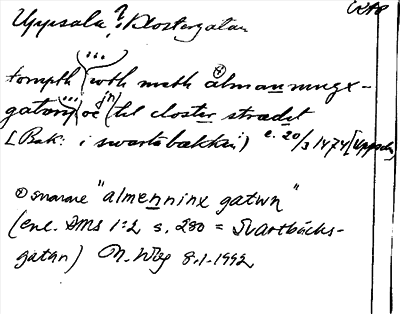 Uppsala ? : Klostergatan
tompth ... oth meth ⊕ almannungx-
gatwn ... oc jn til closter strædit
[Bak: i swartabækkin) c. 20/3 1474 [Uppsala]
⊕ snarare "almenninx gatwn"
(enl. DMS 1:2 s. 280 = Svartbäcks-
gatan) M. Wbg 8.1.1992